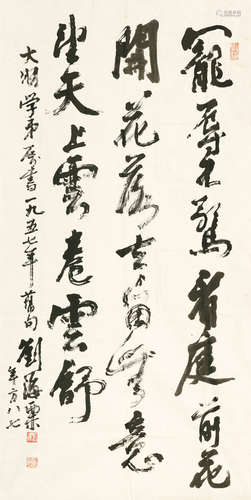 寵辱不驚看庭前花
開花落去留無意
望天上雲卷雲舒
学弟属書一九五七年舊句劉海粟
年方八七